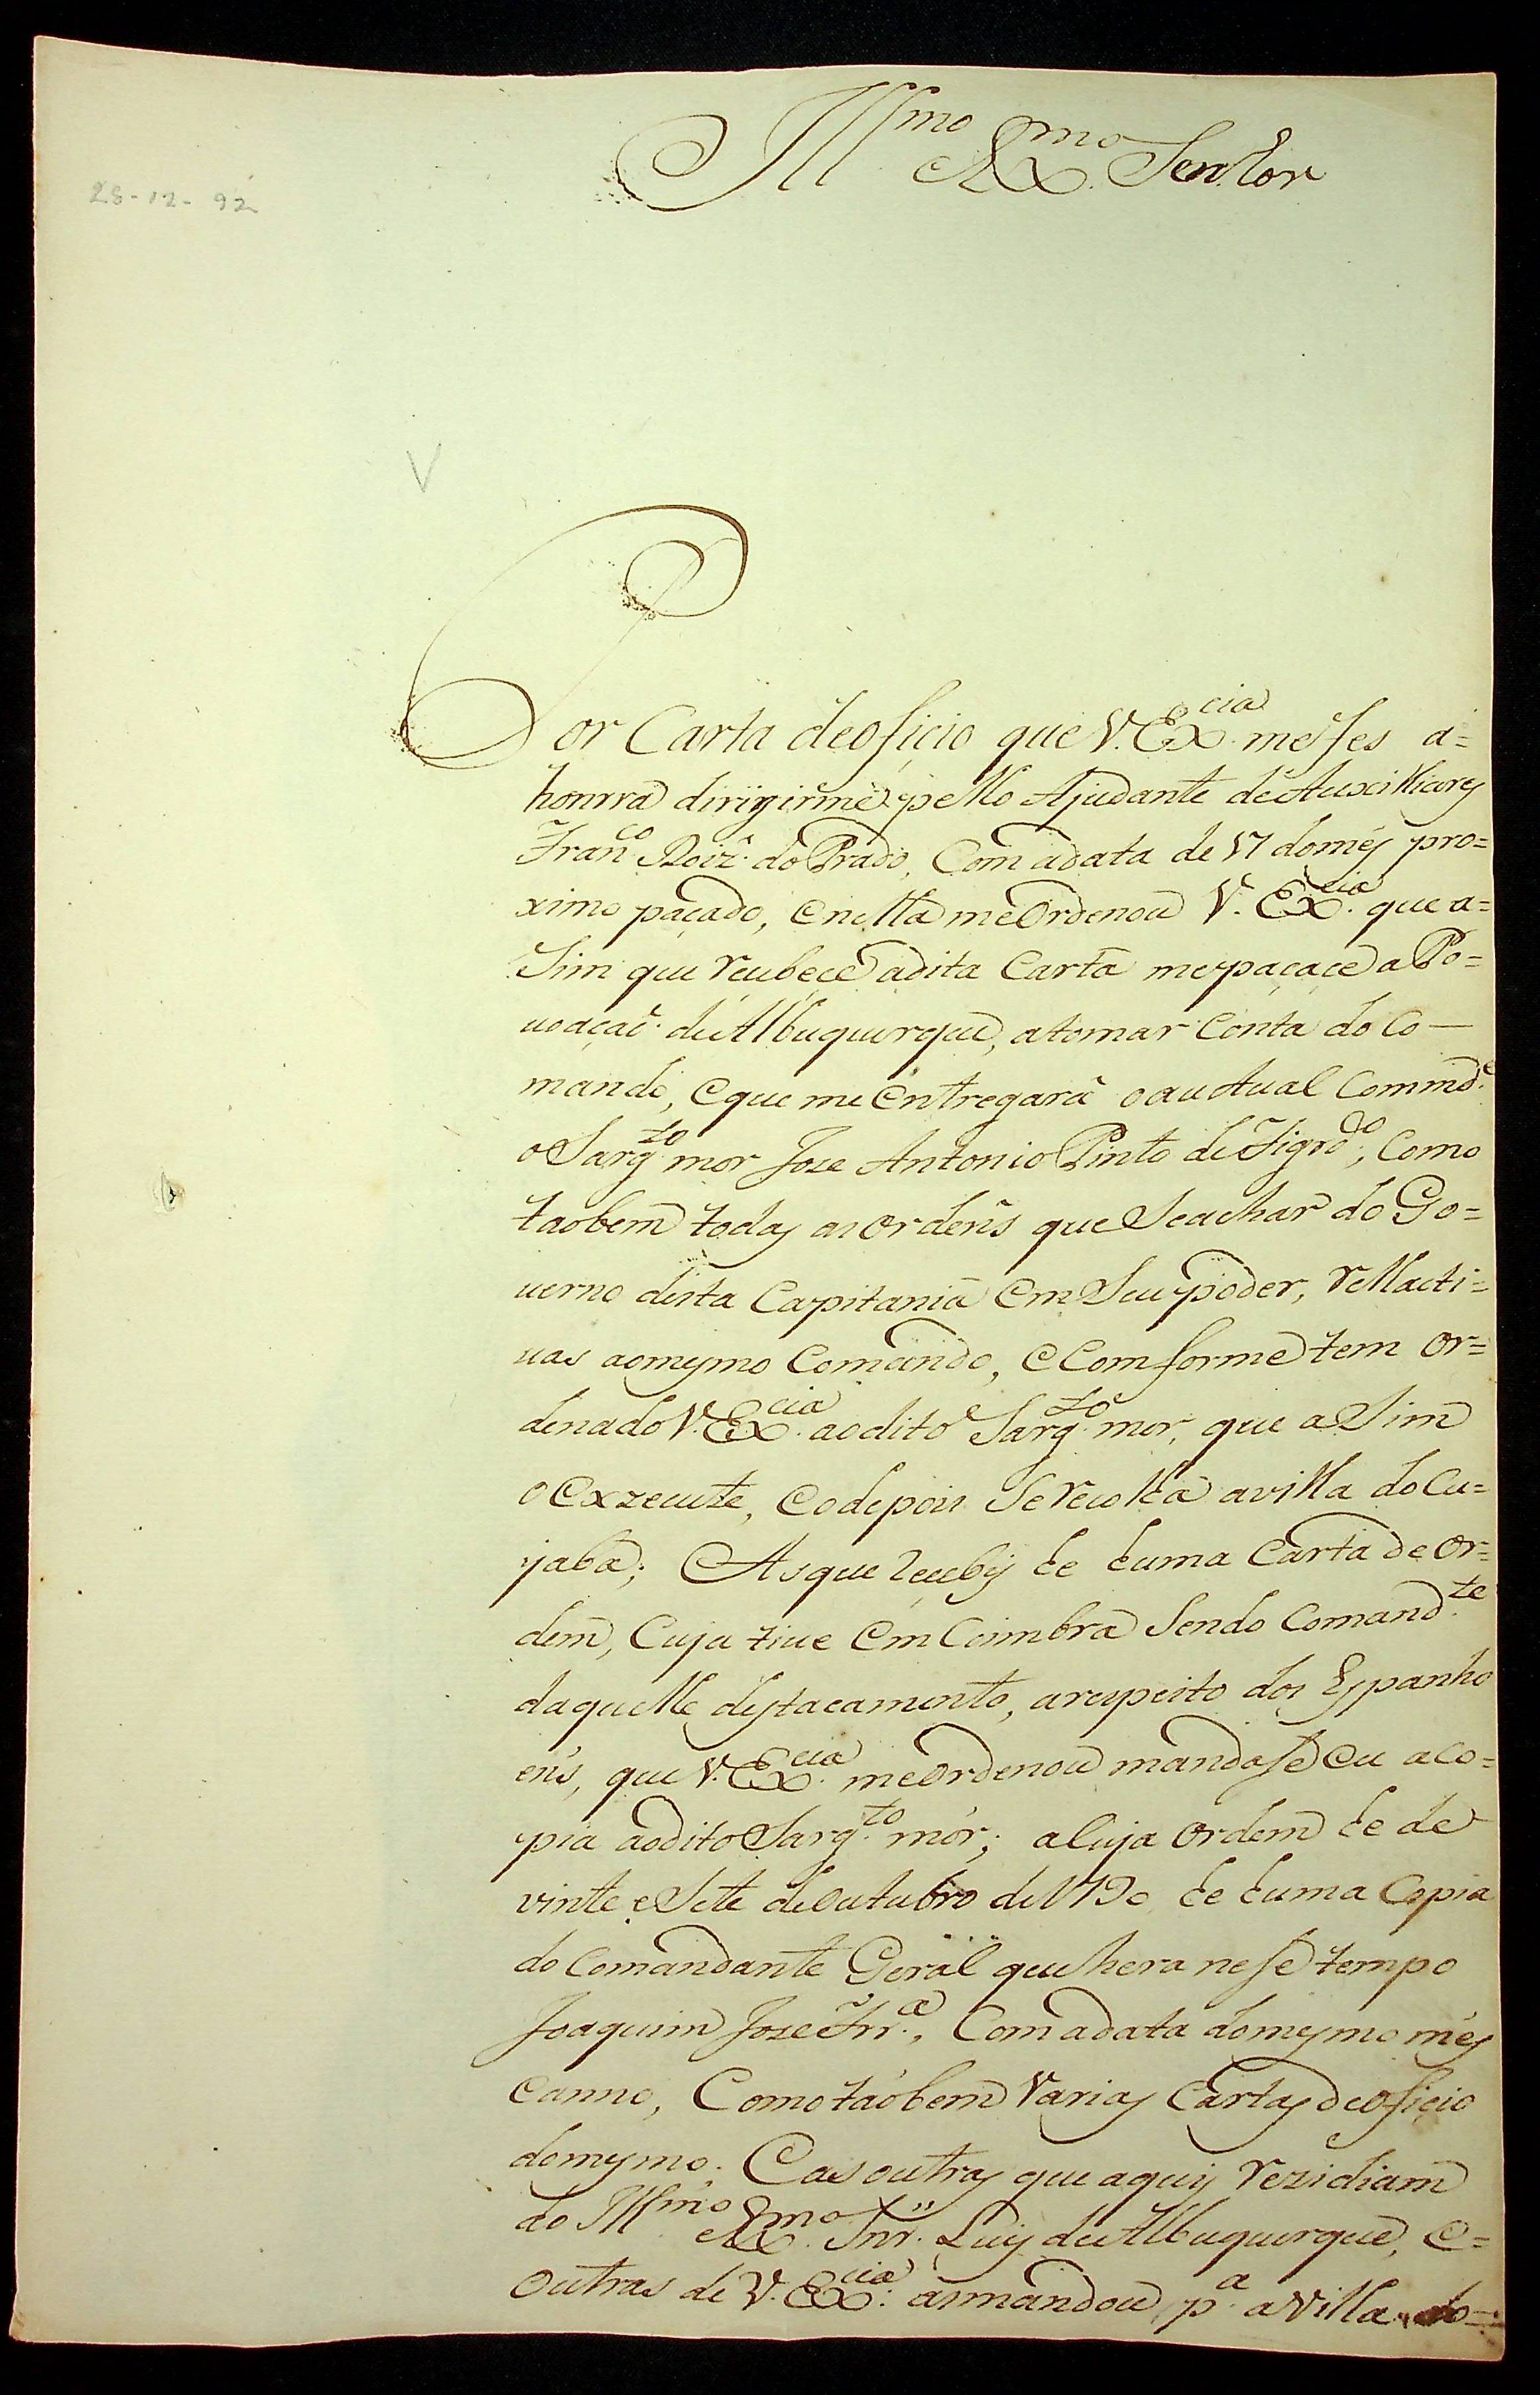 Ill.mo e Ex.mo Senhor
28-12-92
V
Por Carta de oficio que V. Ex.cia me fes a=
honrra dirigirme pello Ajudante de Auxilliares
Fran.co Roiz' do Prado, Com a data de 17 do mês pro=
ximo paçado, e nella me Ordenou V. Ex.cia que a=
Sim que recebece a dita Carta me paçace a Po=
uoaçaõ de Albuquerque, a tomar Conta do Co—
mando, e que me entregará o auctual Commd.e
o Sarg.to mor Joze Antonio Pinto de Figr.do, Como
taobem todas as ordens que Se achar do Go=
uerno desta Capitania em Seu poder, rellacti=
uas ao mesmo Comando, e Comforme tem or=
denado V. Ex.cia ao dito Sarg.to mor, que a Sim
o exzecute, e o depois Se recolha a villa do Cu=
yabá; As que recebÿ he huma Carta de or=
dem, Cuja tiue em Coimbra Sendo Comand.te
daquelle destacamento, a respeito dos Espanho
ens, que V. Ex.cia me Ordenou mandase eu a co=
pia ao dito Sarg.to mór; a Cuja ordem he de
vinte e Sete de outubro de 1790 he huma Copia
do Comandante Geral que hera nese tempo
Joaquim Joze Frr.a, Com a data do mesmo mês
e anno, Como taobem varias Cartas de oficio
do mesmo. E as outras que aquÿ rezidiam
do Ill.mo e Ex.mo Snr. Luis de Albuquerque, e=
outras de V. Ex.cia as mandou p.a a villa do=